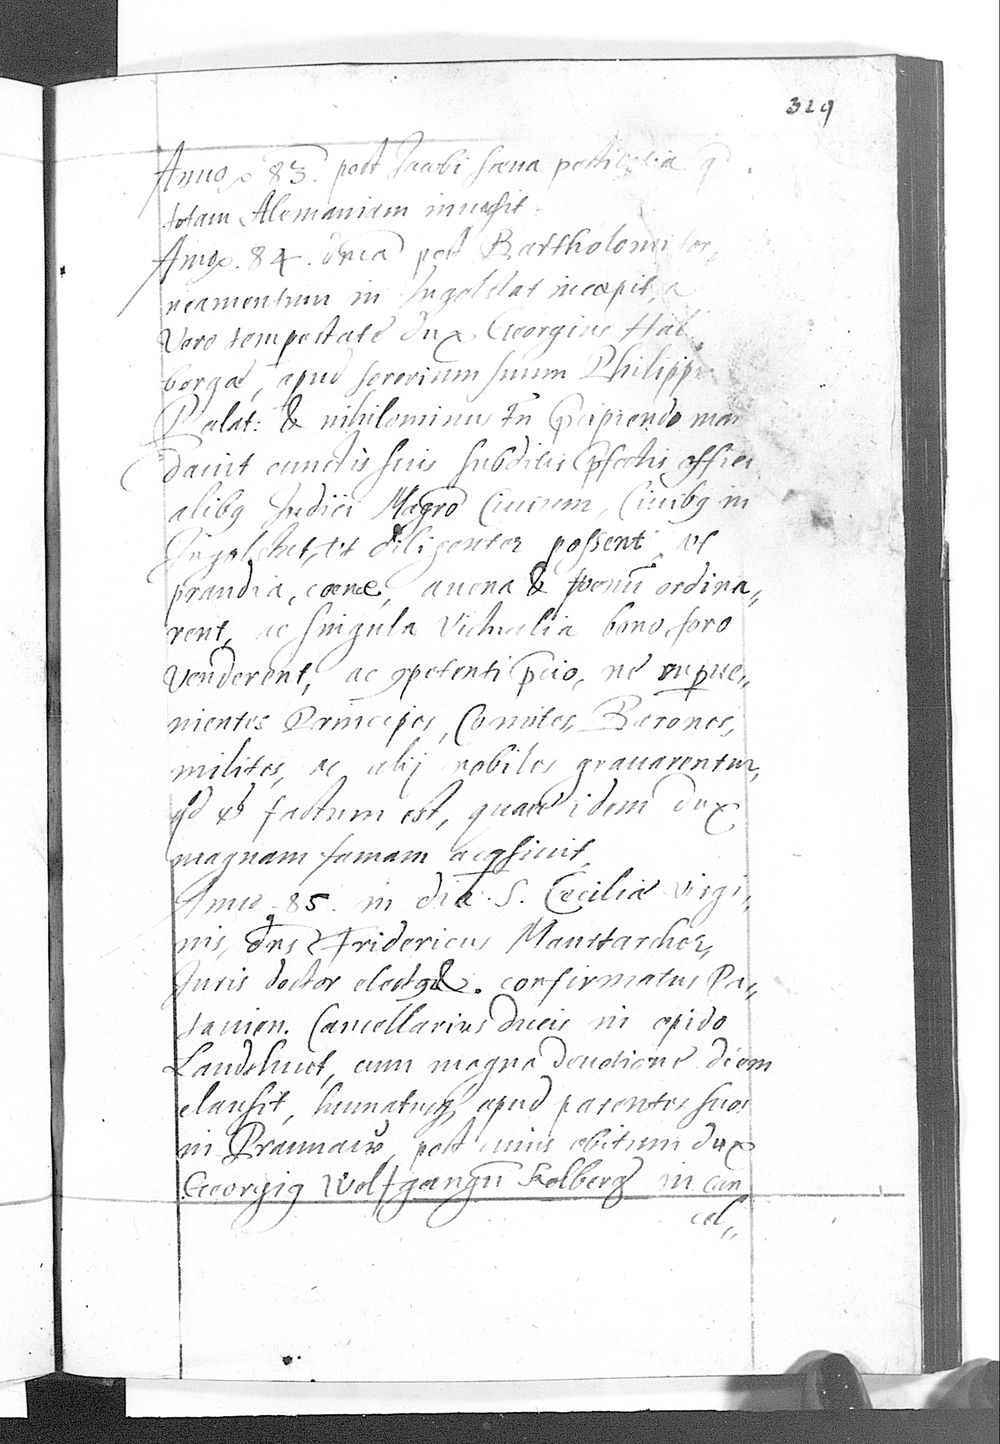 329
Anno 83. post Jacobi sæua pestilentia q
totam Alemaniam inuasit.
Anno. 84. dnica post Bartholomei tor„
neamentum in Ingolstat incæpit, a
Vero tempestate dux Georgius Hai
bergæ, apud sororium suum Philipp
Palat: & nihilominus tn pcipiendo man
dauit cunctis suis subditis, pfectis, offici
alibq Judici Magro Ciuium, Ciuibq in
Ingolstat, vt diligenter possent, vt
prandia, cœnæ, auena & fœnu ordina„
rent, ac singula victualia bono foro
venderent, ac competenti pcio, ne superue„
nientes Principes, Comites, Barones,
milites, ac alij nobiles grauarentur,
qd & factum est, quare idem dux
magnam famam acqsiuit.
Anno. 85. in die. S. Cæciliæ Virgi„
nis, dns Fridericus Maustarcher,
Juris doctor electq &. confirmatus Pa„
tauien. Cancellarius ducis in opido
Landshuet, cum magna deuotione diem
clausit, humatusq apud parentes suos
in Praunaw, post cuius obitum dux
Georgiq Wolfgangu Kolberg in can
cel„